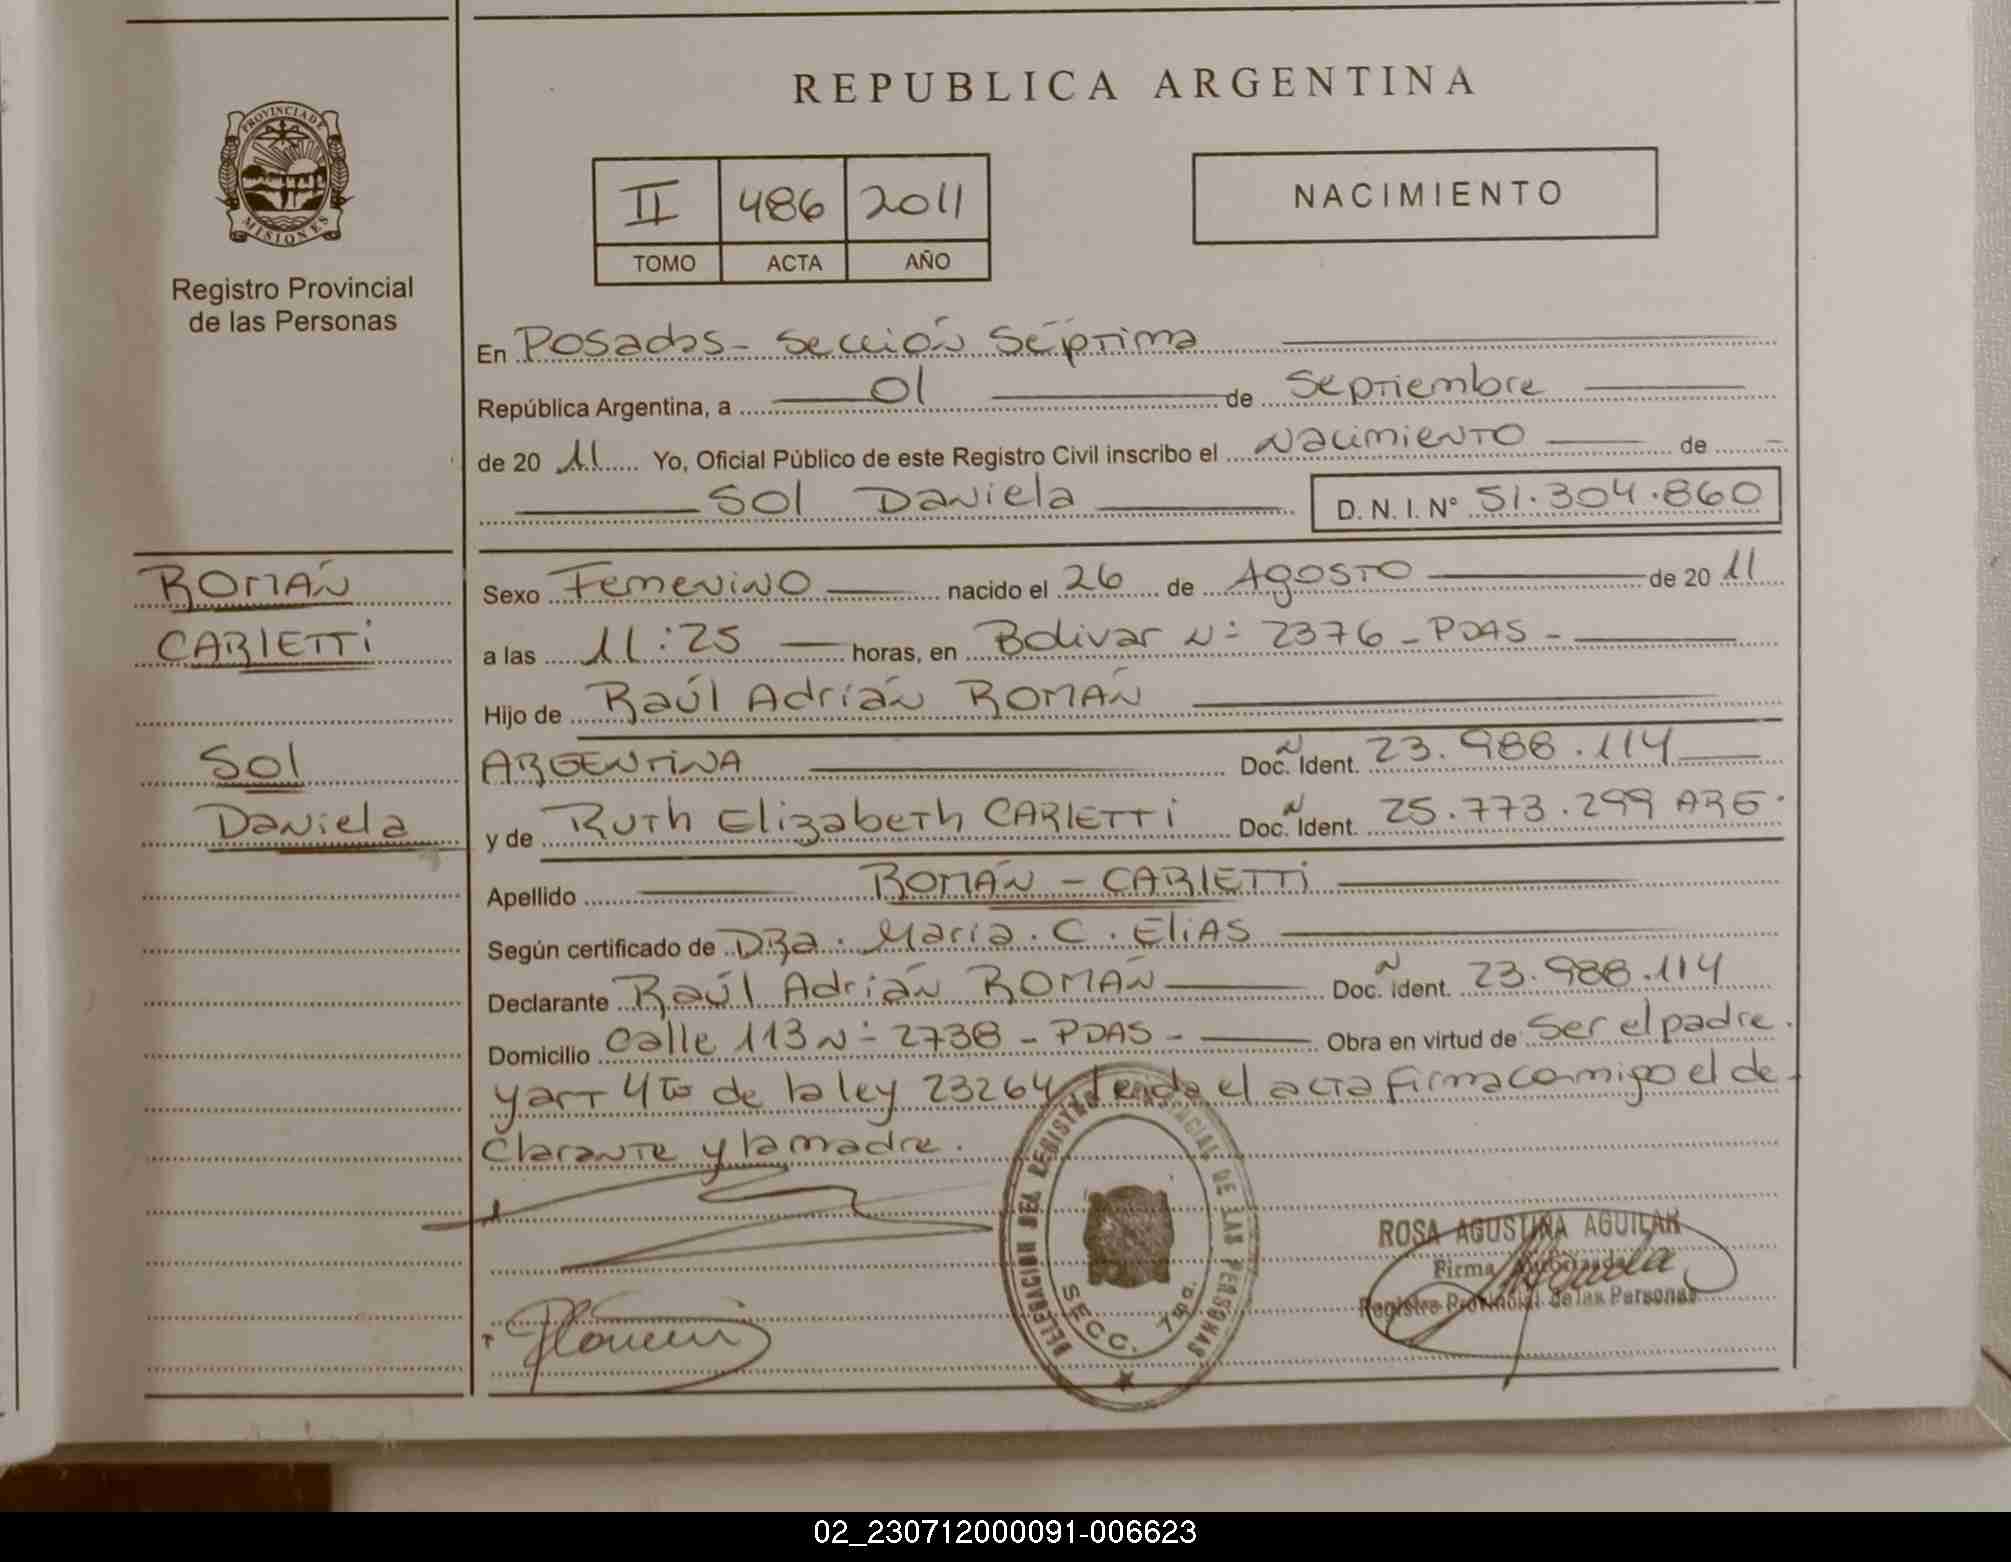 REPUBLICA ARGENTINA
PROVINCIA DE
MISIONES
Registro Provincial
de las Personas
II 486 2011
TOMO ACTA AÑO
NACIMIENTO
En Posadas - Sección Séptima
República Argentina, a 01 de Septiembre
de 20 11 Yo, Oficial Público de este Registro Civil inscribo el Nacimiento de
Sol Daniela D. N. I. N° 51.304.860
ROMÁN
CARLETTI
Sol
Daniela
Sexo Femenino nacido el 26 de Agosto de 20 11
a las 11:25 horas, en Bolivar N° 2376 - PDAS -
Hijo de Raúl Adrián ROMÁN
ARGENTINA Doc. Ident. 23.988.114
y de Ruth Elizabeth CARLETTI Doc. Ident. 25.773.299 ARG.
Apellido ROMÁN - CARLETTI
Según certificado de DRa. Maria. C. Elias
Declarante Raúl Adrián ROMÁN Doc. ident. 23.988.114
Domicilio Calle 113 N° 2738 - PDAS - Obra en virtud de Ser el padre.
y art 4to de la ley 23264 leida el acta firma conmigo el de-
clarante y la madre.
DELEGACION DEL REGISTRO PROVINCIAL DE LAS PERSONAS
SECC. 7ma.
ROSA AGUSTINA AGUILAR
Firma Autorizada
Registro Provincial de las Personas
02_230712000091-006623